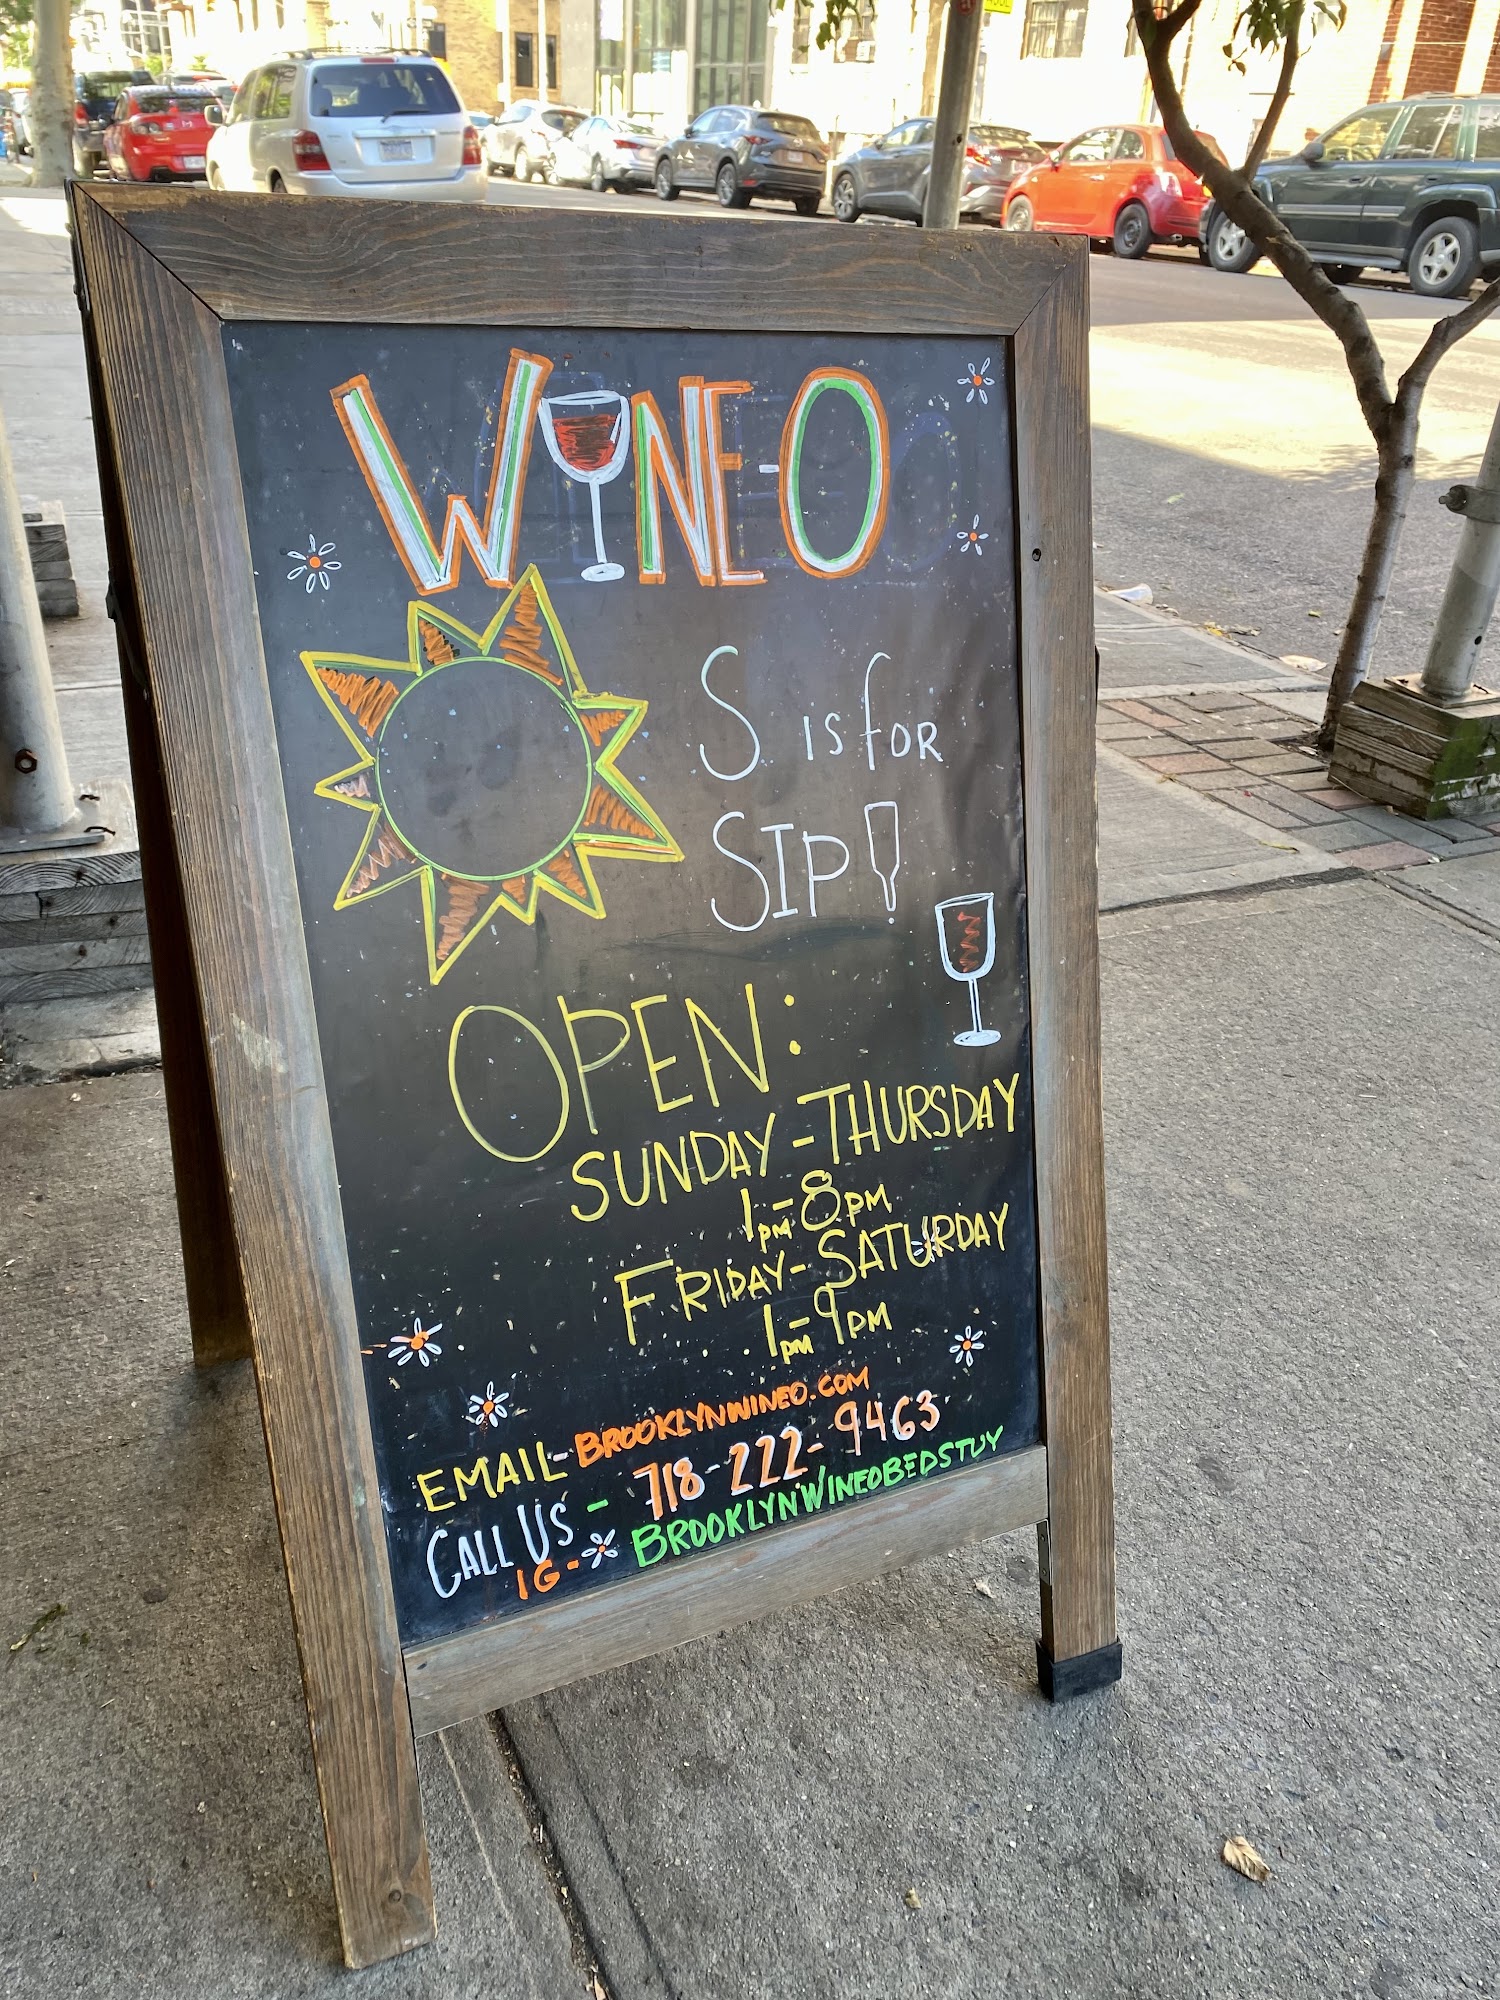 WINE-O
S IS FOR
SIP!
OPEN:
SUNDAY - THURSDAY
1PM - 8PM
FRIDAY - SATURDAY
1PM - 9PM
EMAIL - BROOKLYNWINEO.COM
CALL US - 718-222-9463
IG - BROOKLYNWINEOBEDSTUY